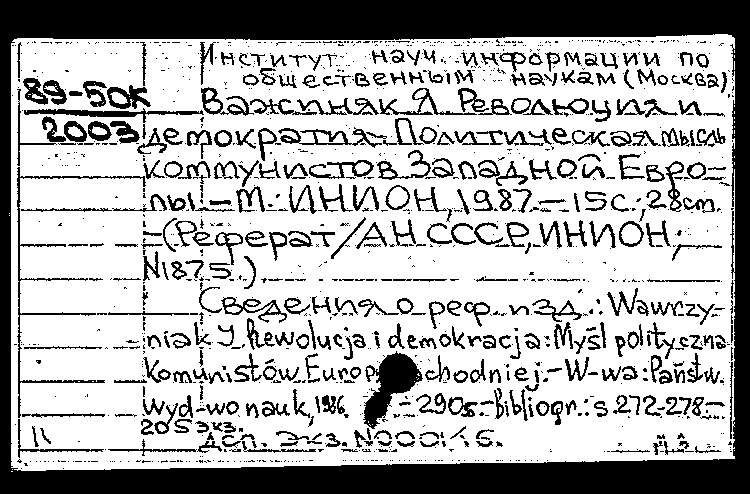 Институт науч. информации по
общественным наукам (Москва)
89-50К
2003
Важиняк Я. Революция и
демократия: Политическая мысль
коммунистов Западной Евро-
пы. — М.: ИНИОН, 1987. — 15 с.; 28 cm.
— (Реферат / АН СССР, ИНИОН;
N1875.)
Сведения о реф. изд.: Wawrzy-
niak J. Rewolucja i demokracja: Myśl polityczna
komunistów Europ chodniej. — W-wa: Państw.
wyd-wo nauk, 1986. — 290 s. — Bibliogr.: s. 272-278. —
205 экз.
Дсп. Экз. N00016.
11